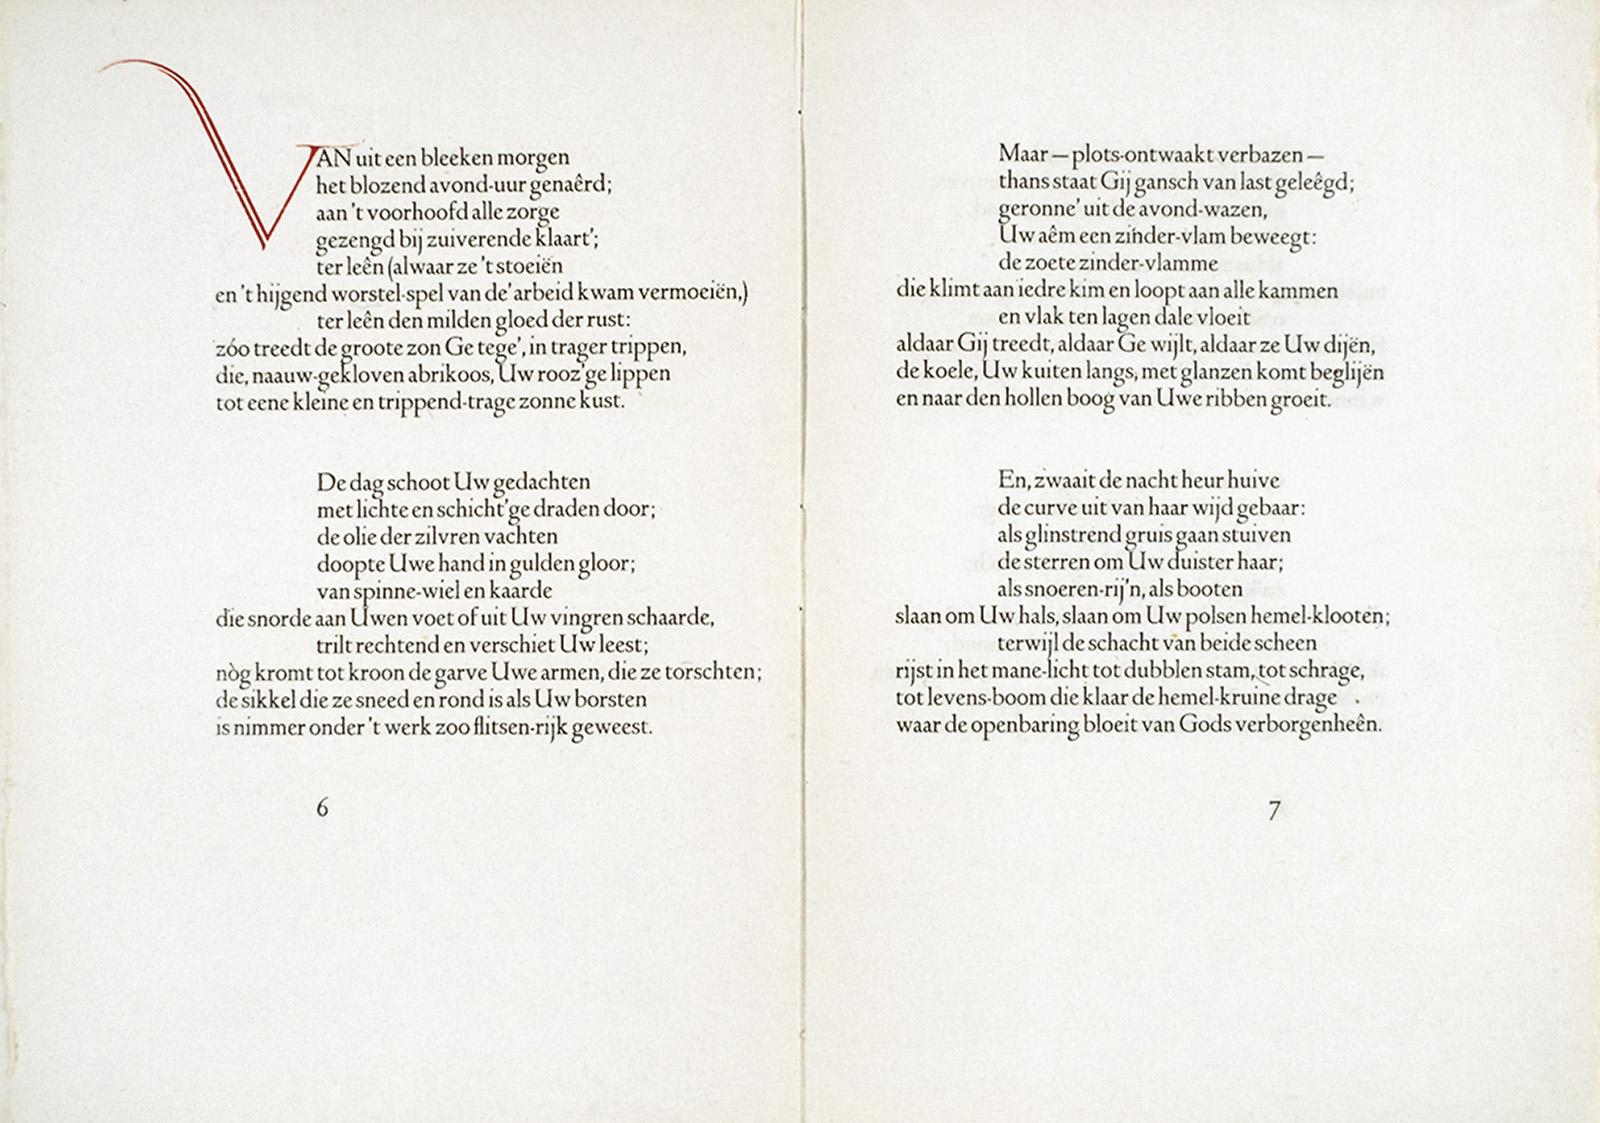 VAN uit een bleeken morgen
het blozend avond-uur genaêrd;
aan 't voorhoofd alle zorge
gezengd bij zuiverende klaart';
ter leên (alwaar ze 't stoeiën
en 't hijgend worstel-spel van de' arbeid kwam vermoeiën,)
ter leên den milden gloed der rust:
zóo treedt de groote zon Ge tege', in trager trippen,
die, naauw-gekloven abrikoos, Uw rooz'ge lippen
tot eene kleine en trippend-trage zonne kust.
De dag schoot Uw gedachten
met lichte en schicht'ge draden door;
de olie der zilvren vachten
doopte Uwe hand in gulden gloor;
van spinne-wiel en kaarde
die snorde aan Uwen voet of uit Uw vingren schaarde,
trilt rechtend en verschiet Uw leest;
nòg kromt tot kroon de garve Uwe armen, die ze torschten;
de sikkel die ze sneed en rond is als Uw borsten
is nimmer onder 't werk zoo flitsen-rijk geweest.
6
Maar — plots-ontwaakt verbazen —
thans staat Gij gansch van last geleêgd;
geronne' uit de avond-wazen,
Uw aêm een zinder-vlam beweegt:
de zoete zinder-vlamme
die klimt aan iedre kim en loopt aan alle kammen
en vlak ten lagen dale vloeit
aldaar Gij treedt, aldaar Ge wijlt, aldaar ze Uw dijën,
de koele, Uw kuiten langs, met glanzen komt beglijën
en naar den hollen boog van Uwe ribben groeit.
En, zwaait de nacht heur huive
de curve uit van haar wijd gebaar:
als glinstrend gruis gaan stuiven
de sterren om Uw duister haar;
als snoeren-rij'n, als booten
slaan om Uw hals, slaan om Uw polsen hemel-klooten;
terwijl de schacht van beide scheen
rijst in het mane-licht tot dubblen stam, tot schrage,
tot levens-boom die klaar de hemel-kruine drage
waar de openbaring bloeit van Gods verborgenheên.
7